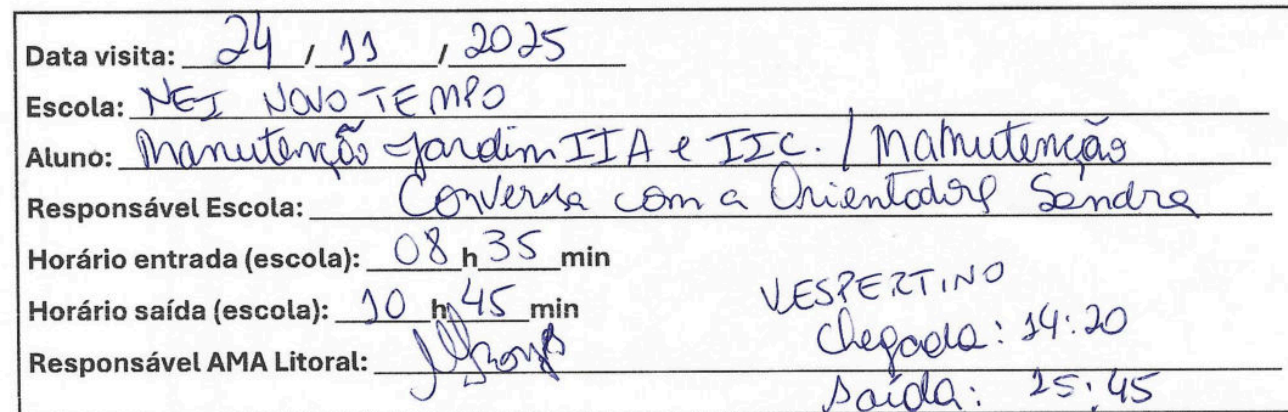 Data visita: 24 / 11 / 2025
Escola: NEI NOVO TEMPO
Aluno: Manutenção Jardim IIA e IIC. / Manutenção
Responsável Escola: Conversa com a Orientadora Sandra
Horário entrada (escola): 08 h 35 min
Horário saída (escola): 10 h 45 min
Responsável AMA Litoral:
VESPERTINO
Chegada: 14:20
Saída: 15:45